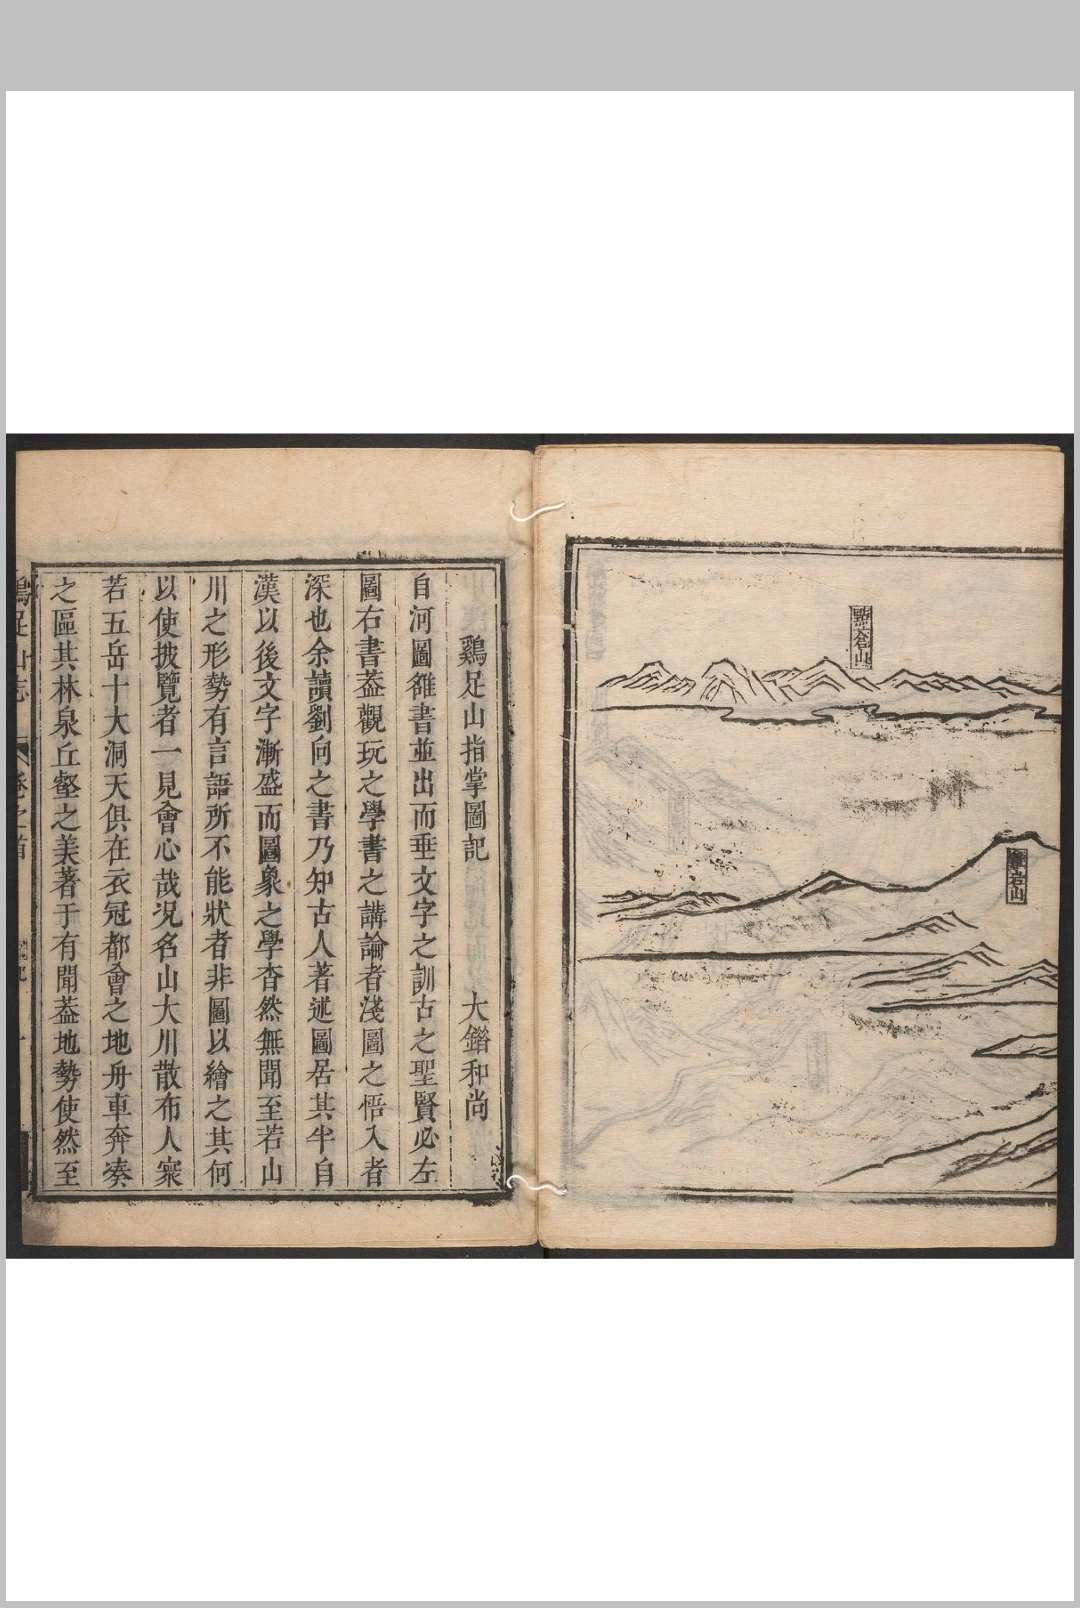 點倉山
岩山
鷄足山指掌圖記
大錯和尚
自河圖雒書並出而垂文字之訓古之聖賢必左
圖右書蓋觀玩之學書之講論者淺圖之悟入者
深也余讀劉向之書乃知古人著述圖居其半自
漢以後文字漸盛而圖象之學杳然無聞至若山
川之形勢有言語所不能狀者非圖以繪之其何
以使披覽者一見會心哉况名山大川散布人寰
若五岳十大洞天俱在衣冠都會之地舟車奔凑
之區其林泉丘壑之美著于有聞蓋地勢使然至
鷄足山志 卷之首 圖記 一